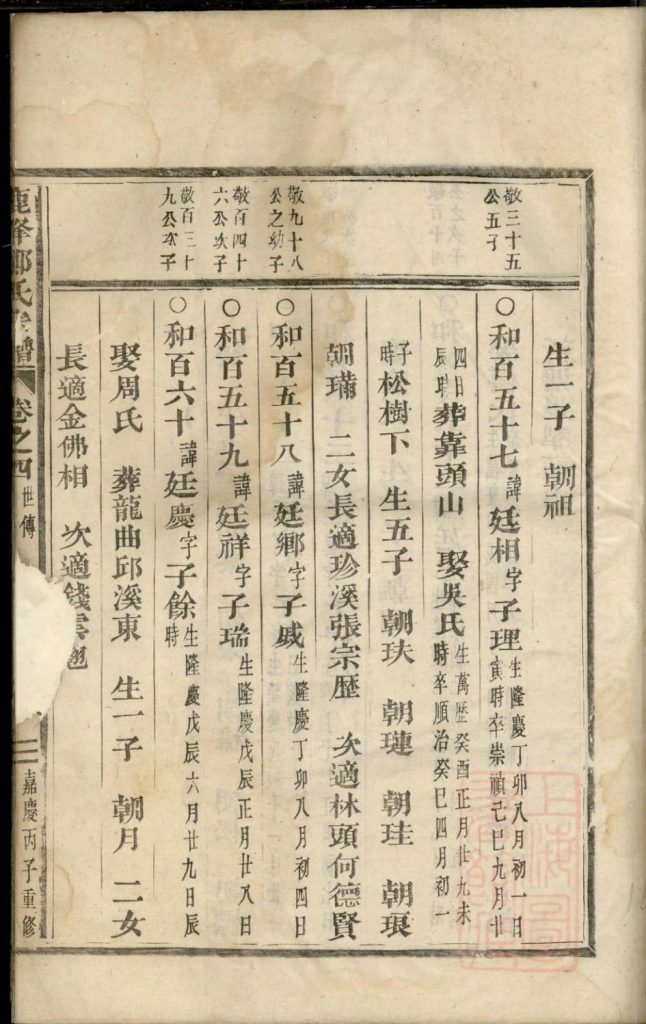 生一子　朝祖
敬三十五公五子
○和百五十七諱廷相字子理生隆慶丁卯八月初一日寅時卒崇禎己巳九月廿
四日辰時葬靠頭山　娶吳氏生萬歷癸酉正月廿九未時卒順治癸巳四月初一
子時松樹下　生五子　朝玞　朝璉　朝珪　朝
朝璊　二女長適珍溪張宗歷　次適林頭何德賢
敬九十八公之幼子
○和百五十八諱廷鄉字子威生隆慶丁卯八月初四日
敬百四十六公次子
○和百五十九諱廷祥字子瑞生隆慶戊辰正月廿八日
敬百三十九公次子
○和百六十諱廷慶字子餘生隆慶戊辰六月廿九日辰時
娶周氏　葬龍曲邱溪東　生一子　朝月　二女
長適金佛相　次適錢
鹿峰鄭氏宗譜　卷之四　世傳　嘉慶丙子重修